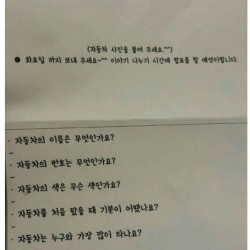 (자동차 사진을 붙여 주세요.^^)
● 화요일 까지 보내 주세요~^^ 이야기 나누기 시간에 발표를 할 예정이랍니다.
· 자동차의 이름은 무엇인가요?
-
· 자동차의 번호는 무엇인가요?
-
· 자동차의 색은 무슨 색인가요?
-
· 자동차를 처음 탔을 때 기분이 어땠나요?
-
· 자동차는 누구와 가장 많이 타나요?